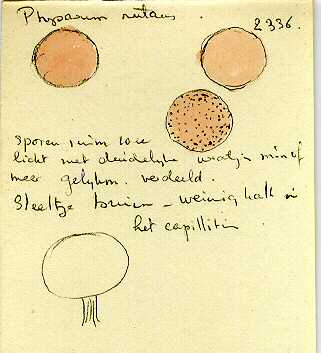 Physarum nutans. 2336.
sporen ruim 10 µ
licht met duidelijke wratjes min of
meer gelijkm. verdeeld.
Steeltje bruin - weinig kalk in
het capillitium